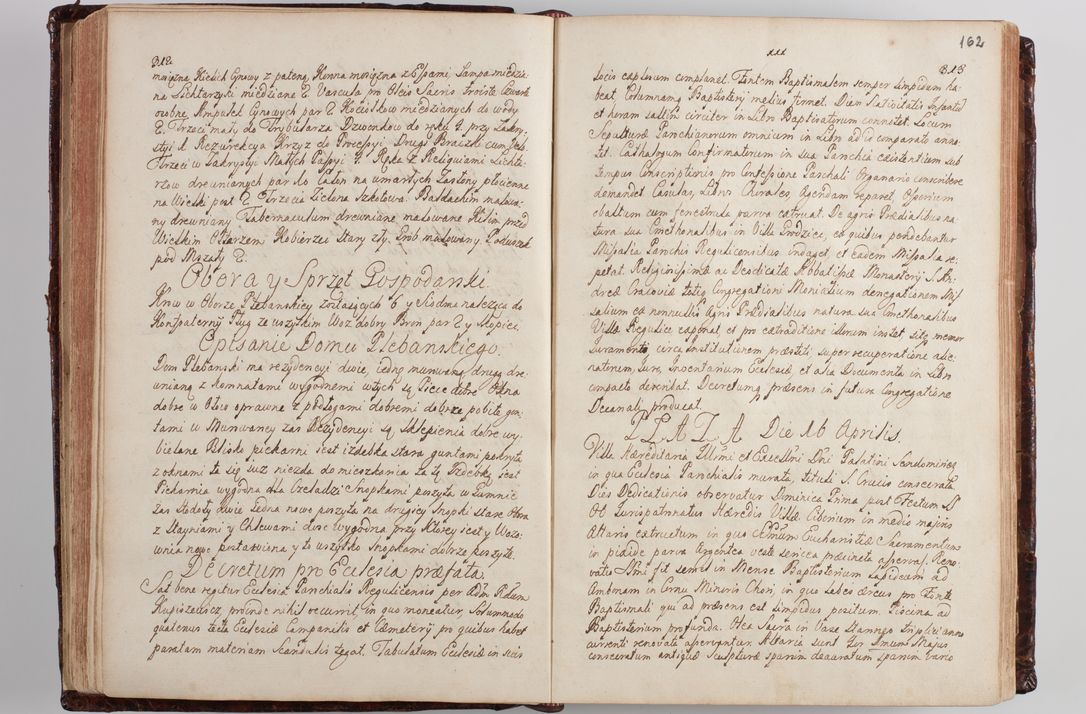 312.
mosiężna Kielich Cynowy z pateną, Konna mosiężna z Espami Lampa miedzia-
na Lichtarzyki miedziane 2. Vascula pro Oleis Sacris Troiste Czwarte
osobne Ampułek Cynowych par 2. Kociołków miedzianych do wody
2. Trzeci mały do Trybularza Dzwonków do ręku 4. przy Zakry-
styi 1. Rezurekcya Krzyż do Processyi Drugi Braczki cum
Trzeci w Zakrystyi Małych Passyi 4. Rąka z Reliquiami Lichta-
rzów drewnianych par do Całon na umarłych Zasłony płócienne
na Wielki post 2. Trzecia Zielona Szkotowa. Baldachim malowa-
ny drewniany Tabernaculum drewniane malowane Kilim przed
Wielkim Ołtarzem Kobierzec Stary zły. Grob malowany Poduszek
pod Mszały 2.
Obora y Sprzęt Gospodarski.
Krow w Oborze Plebanskiey zostaiących 6. y Siodma należąca do
Konfraternij Pług ze wszytkim Woz dobry Bron par 2. y Stopieci
Opisanie Domu Plebanskiego.
Dom Plebanski ma rezydencyi dwie, iedną murwaną drugą dre-
wnianą z Komnatami wygodnemi wszych są Piece dobre Okna
dobre w Ołow oprawne z podłogami dobremi dobrze pobite gon-
tami w Murwaney zas Rezydencyi są sklepienia dobre wy-
bielane Blisko piekarni iest izdebka stara guntami pokryta
z oknami te się iuz niezda do mieszkania za tą Izdebką iest
Piekarnia wygodna dla Czeladzi Snopkami poszyta w Gumnie
Zas Stodoły dwie iedna nowo poszyta na drugiey Snopki stare Obora
z Stayniami y Chlewami dosc wygodna przy ktorey iest y Wozo-
wnia nowo postawiona y to wszytko Snopkami dobrze poszyte.
Decretum pro Ecclesia præfata.
Sat bene regitur Ecclesia Parichialis Regulicensis per Adm Rdum
Kupiszewicz, proinde nihil occurrit, in quo moneatur, Solummodo
quatenus tecta Ecclesiæ Campanilis et Cæmeterij pro quibus habet
paratam materiam Scandulis tegat. Tabulatum Ecclesiæ in suis
162
313
locis capsorum complanet. Fontem Baptismalem semper limpidum ha-
beat, Columnam Baptisterij melius firmet. Diem Nativitatis Infantul
et horam saltim circiter in Libro Baptisatorum connotet. Locum
Sepulturæ Parochianorum omnium in Libro ad id comparato anno-
tet. Cathalogum Confirmatorum in sua Parochia existentium sub
tempus Conscriptionis pro Confessione Paschali Organario conscribere
demandet Casulas, Libros Chorales, Agendam reparet, Ostorium
cbaltum cum fenestrula parva extruat. De agris Prædialibus na-
tura sua Cmethonalibus in Villa Grodziec, ex quibus pendebantur
Missalia Parochis Regulicensibus indaget, et eadem Missalia re-
petat. Religiosissimæ ac Deodicatæ Abbatissæ Monasterij S. An-
dreæ Cracoviæ totiq Congregationi Monialium denegationem Mis-
salium ex nonnullis Agris Prædialibus natura sua Cmethonalibus
Villæ Regulice exponat et pro extraditione illorum instet, sitq memor
Juramenti circa institutionem præstiti, super recuperatione alie-
natorum Jure. Inventarium Ecclesiæ, et alia Documenta in Libro
compacto describat. Decretumq præsens in futura Congregatione
Decanali producat.
PŁAZA Die 16 Aprilis.
Villa Hæreditaria Illmi et Excellmi Dni Palatini Sandomirien
in qua Ecclesia Parochialis murata, tituli S. Crucis consecrata
Dies Dedicationis observatur Dominica Prima post Festum SS
OO Jurispatronatus Hæredis Villæ Ciborium in medio majoris
Altaris extructum in quo SSmum Eucharistiæ Sacramentum
in pixide parva Argentea veste sericea præcincta asservat. Reno-
vatio SSmi fit semel in Mense Baptisterium lapideum ad
Ambonam in Cornu Minoris Chori, in quo labes æreus pro Fonte
Baptismali qui ad præsens est limpidus positum. Piscina ad
Baptisterium profunda. Olea Sacra in Vase stanneo triplici anno
currenti renovata asservantur. Altaria sunt tria Imum Majus
consecratum antiquæ Sculpturæ sparsim deauratum sparsim vario